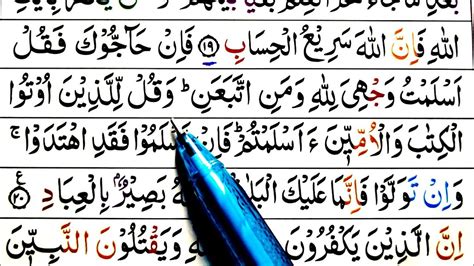 بَعْدِ مَا جَآءَهُمُ الْعِلْمُ بَغْيًۢا بَيْنَهُمْ
اللّٰهِ فَاِنَّ اللّٰهَ سَرِيْعُ الْحِسَابِ ۱۹ فَاِنْ حَآجُّوْكَ فَقُلْ
اَسْلَمْتُ وَجْهِىَ لِلّٰهِ وَمَنِ اتَّبَعَنِ ؕ وَقُلْ لِّلَّذِيْنَ اُوْتُوا
الْكِتٰبَ وَالْاُمِّيّٖنَ ءَاَسْلَمْتُمْ ؕ فَاِنْ اَسْلَمُوْا فَقَدِ اهْتَدَوْا ۚ
وَاِنْ تَوَلَّوْا فَاِنَّمَا عَلَيْكَ بَصِيْرٌۢ بِالْعِبَادِ ۲۰ ع
اِنَّ الَّذِيْنَ يَكْفُرُوْنَ وَيَقْتُلُوْنَ النَّبِيّٖنَ